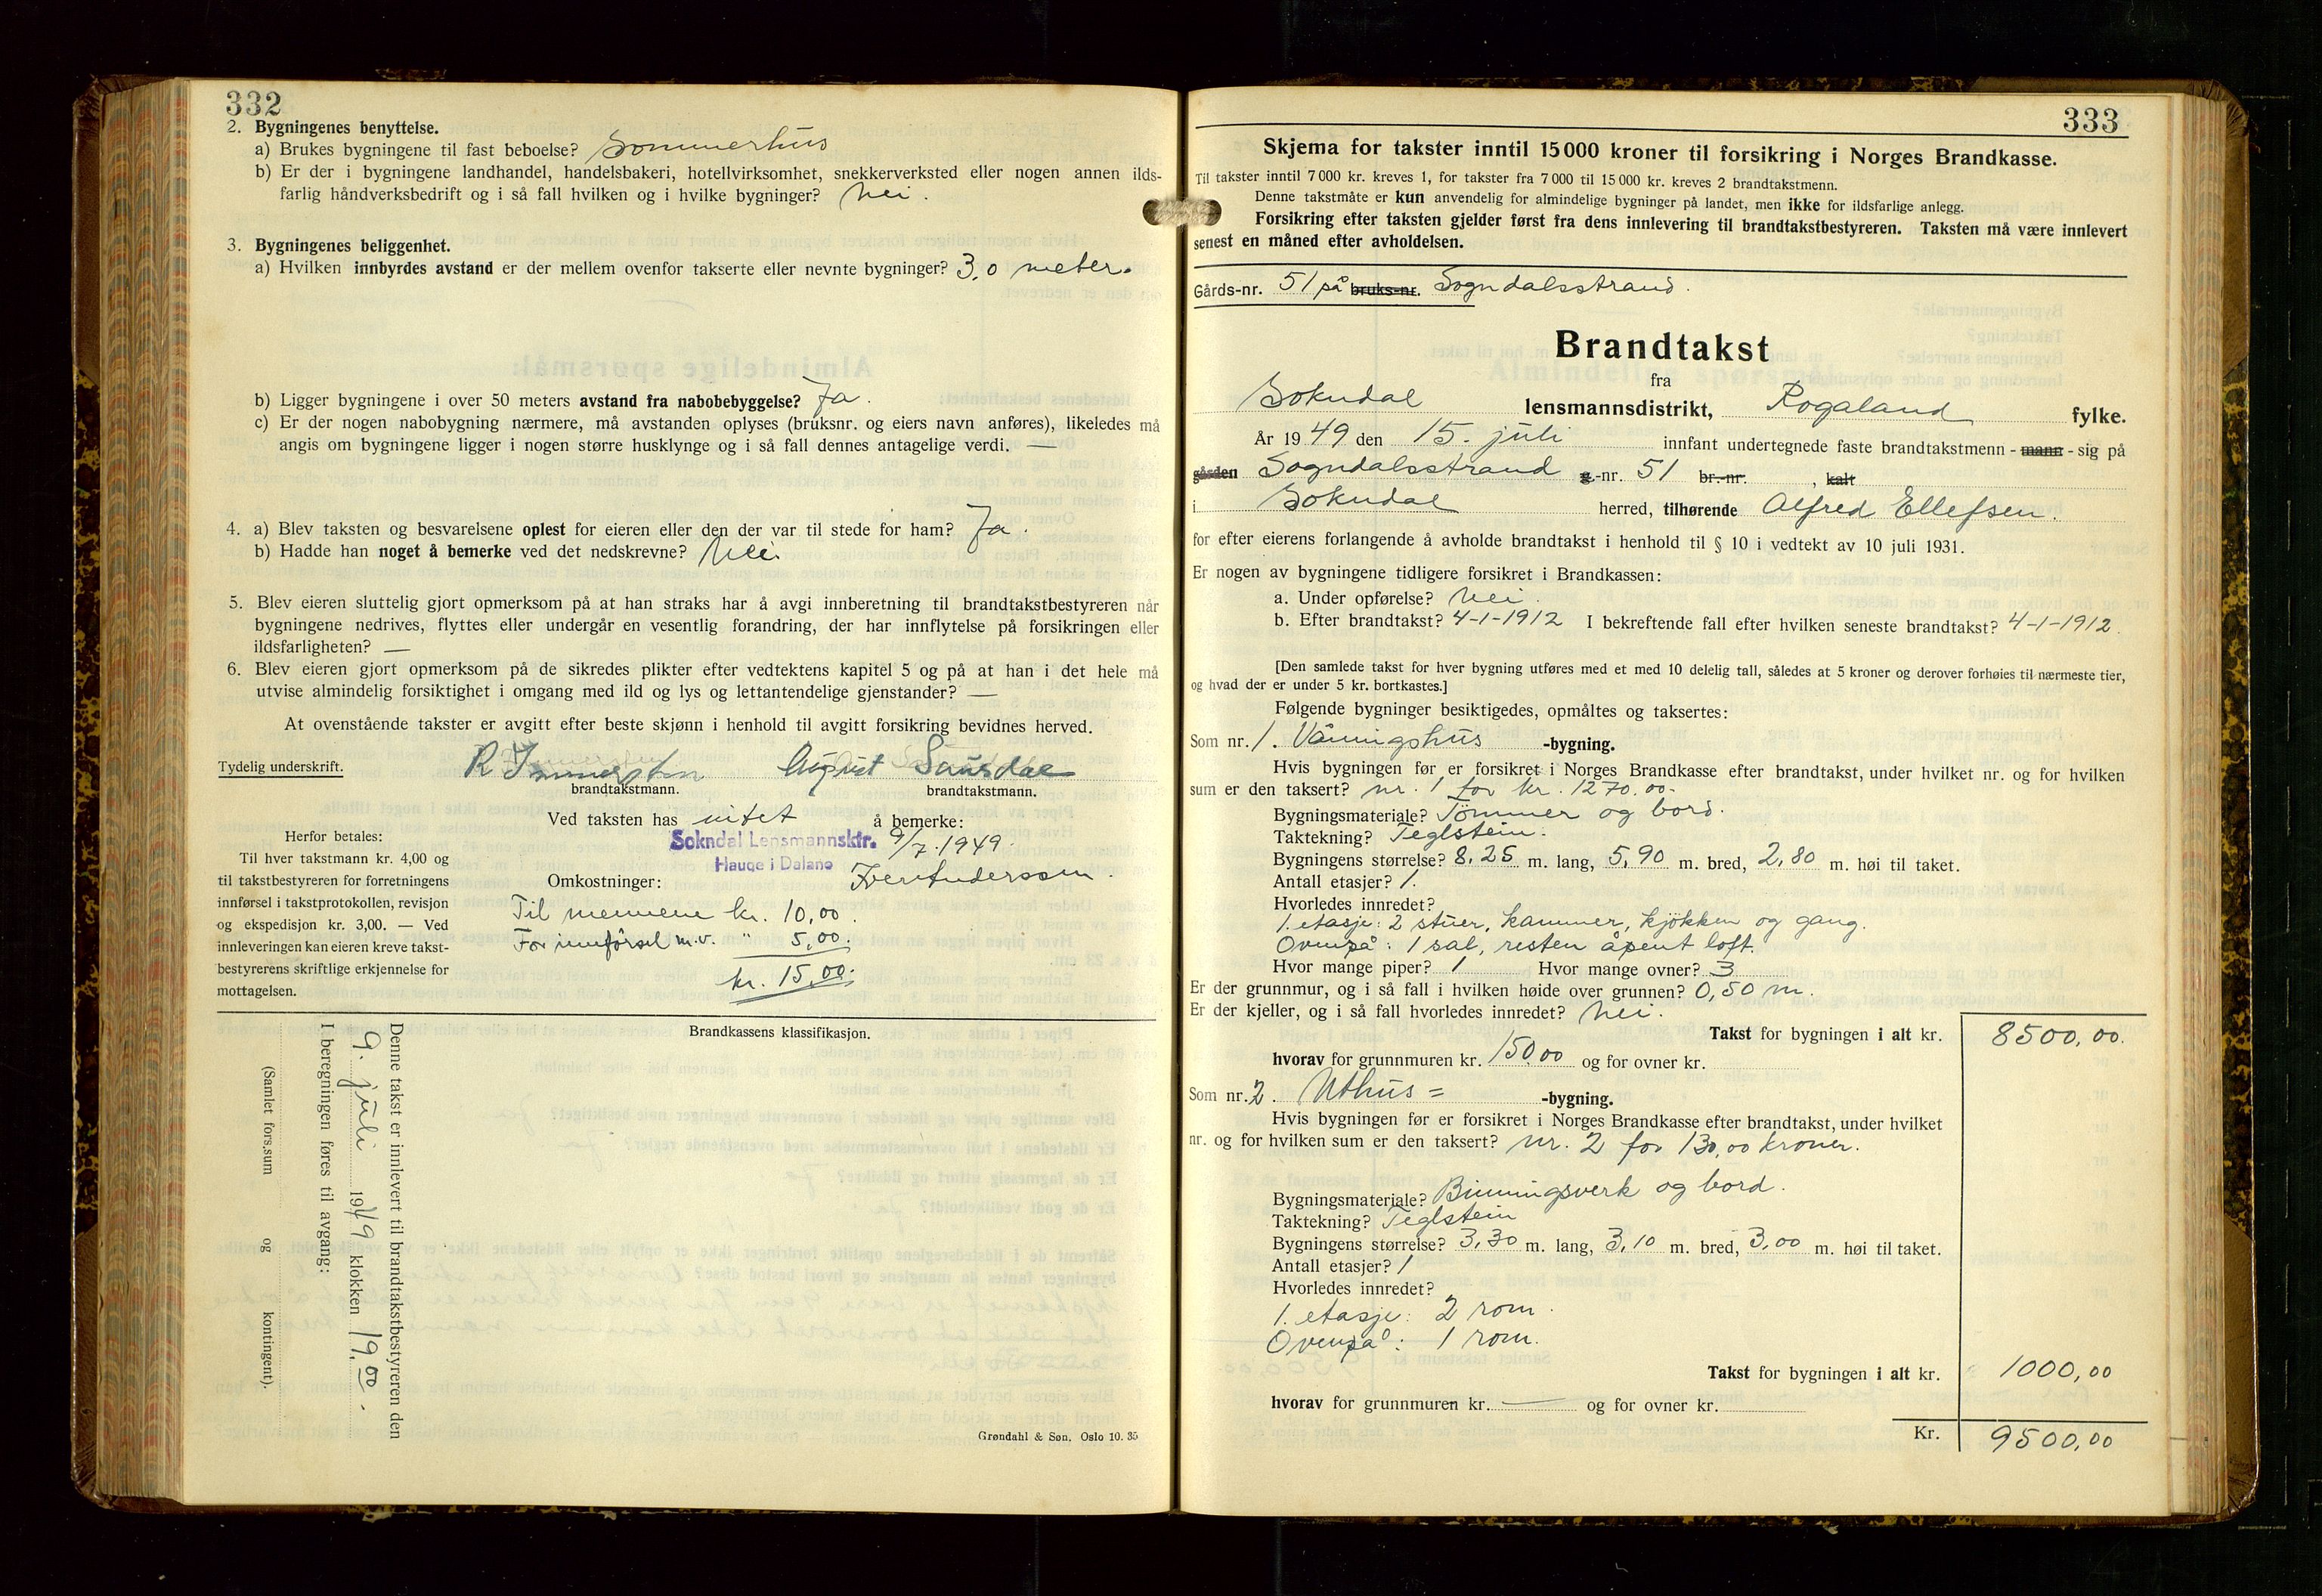 332
2. Bygningenes benyttelse.
a) Brukes bygningene til fast beboelse? Sommerhus
b) Er der i bygningene landhandel, handelsbakeri, hotellvirksomhet, snekkerverksted eller nogen annen ilds-
farlig håndverksbedrift og i så fall hvilken og i hvilke bygninger? Nei.
3. Bygningenes beliggenhet.
a) Hvilken innbyrdes avstand er der mellem ovenfor takserte eller nevnte bygninger? 3,0 meter.
b) Ligger bygningene i over 50 meters avstand fra nabobebyggelse? Ja.
c) Er der nogen nabobygning nærmere, må avstanden oplyses (bruksnr. og eiers navn anføres), likeledes må
angis om bygningene ligger i nogen større husklynge og i så fall dennes antagelige verdi. —
4. a) Blev taksten og besvarelsene oplest for eieren eller den der var til stede for ham? Ja.
b) Hadde han noget å bemerke ved det nedskrevne? Nei.
5. Blev eieren sluttelig gjort opmerksom på at han straks har å avgi innberetning til brandtakstbestyreren når
bygningene nedrives, flyttes eller undergår en vesentlig forandring, der har innflytelse på forsikringen eller
ildsfarligheten? —
6. Blev eieren gjort opmerksom på de sikredes plikter efter vedtektens kapitel 5 og på at han i det hele må
utvise almindelig forsiktighet i omgang med ild og lys og lettantendelige gjenstander? —
At ovenstående takster er avgitt efter beste skjønn i henhold til avgitt forsikring bevidnes herved.
Tydelig underskrift. R August
brandtakstmann. brandtakstmann.
Ved taksten has intet å bemerke:
Sokndal Lensmannsktr. 9/7.1949.
Hauge i Dalane
Herfor betales:
Til hver takstmann kr. 4,00 og
til takstbestyreren for forretningens
innførsel i takstprotokollen, revisjon
og ekspedisjon kr. 3,00. — Ved
innleveringen kan eieren kreve takst-
bestyrerens skriftlige erkjennelse for
mottagelsen.
Omkostninger:
Til mennene kr. 10,00.
For innførsel m.v. " 5,00.
kr. 15,00.
Brandkassens klassifikasjon.
Denne takst er innlevert til brandtakstbestyreren den
9. juli 1949 klokken 19,00.
I beregningen føres til avgang:
(Samlet fors.sum og kontingent).
Grøndahl & Søn, Oslo 10. 35
333
Skjema for takster inntil 15000 kroner til forsikring i Norges Brandkasse.
Til takster inntil 7000 kr. kreves 1, for takster fra 7000 til 15000 kr. kreves 2 brandtakstmenn.
Denne takstmåte er kun anvendelig for almindelige bygninger på landet, men ikke for ildsfarlige anlegg.
Forsikring efter taksten gjelder først fra dens innlevering til brandtakstbestyreren. Taksten må være innlevert
senest en måned efter avholdelsen.
Gårds-nr. 51 på bruks-nr. Sogndalsstrand.
Brandtakst
fra
Sokndal lensmannsdistrikt, Rogaland fylke.
År 1949 den 15. juli innfant undertegnede faste brandtakstmenn - mann - sig på
gården Sogndalsstrand g.-nr. 51 br.-nr. , kalt
i Sokndal herred, tilhørende Alfred Ellefsen.
for efter eierens forlangende å avholde brandtakst i henhold til § 10 i vedtekt av 10 juli 1931.
Er nogen av bygningene tidligere forsikret i Brandkassen:
a. Under opførelse? Nei.
b. Efter brandtakst? 4-1-1912 I bekreftende fall efter hvilken seneste brandtakst? 4-1-1912.
[Den samlede takst for hver bygning utføres med et med 10 delelig tall, således at 5 kroner og derover forhøies til nærmeste tier,
og hvad der er under 5 kr. bortkastes.]
Følgende bygninger besiktigedes, opmåltes og taksertes:
Som nr. 1. Våningshus -bygning.
Hvis bygningen før er forsikret i Norges Brandkasse efter brandtakst, under hvilket nr. og for hvilken
sum er den taksert? nr. 1 for kr. 1270.00.
Bygningsmateriale? Tømmer og bord.
Taktekning? Teglstein.
Bygningens størrelse? 8,25 m. lang, 5,90 m. bred, 2,80 m. høi til taket.
Antall etasjer? 1.
Hvorledes innredet?
1. etasje: 2 stuer, kammer, kjøkken og gang.
Ovenpå: 1 sal, resten åpent loft.
Hvor mange piper? 1 Hvor mange ovner? 3
Er der grunnmur, og i så fall i hvilken høide over grunnen? 0,50 m.
Er der kjeller, og i så fall hvorledes innredet? Nei.
Takst for bygningen i alt kr. 8500,00.
hvorav for grunnmuren kr. 150,00 og for ovner kr.
Som nr. 2. Uthus = -bygning.
Hvis bygningen før er forsikret i Norges Brandkasse efter brandtakst, under hvilket
nr. og for hvilken sum er den taksert? nr. 2 for 130,00 kroner.
Bygningsmateriale? Binningsverk og bord.
Taktekning? Teglstein
Bygningens størrelse? 3,30 m. lang, 3,10 m. bred, 3,00 m. høi til taket.
Antall etasjer? 1
Hvorledes innredet?
1. etasje: 2 rom.
Ovenpå: 1 rom.
Takst for bygningen i alt kr. 1000,00
hvorav for grunnmuren kr. — og for ovner kr.
Kr. 9500,00